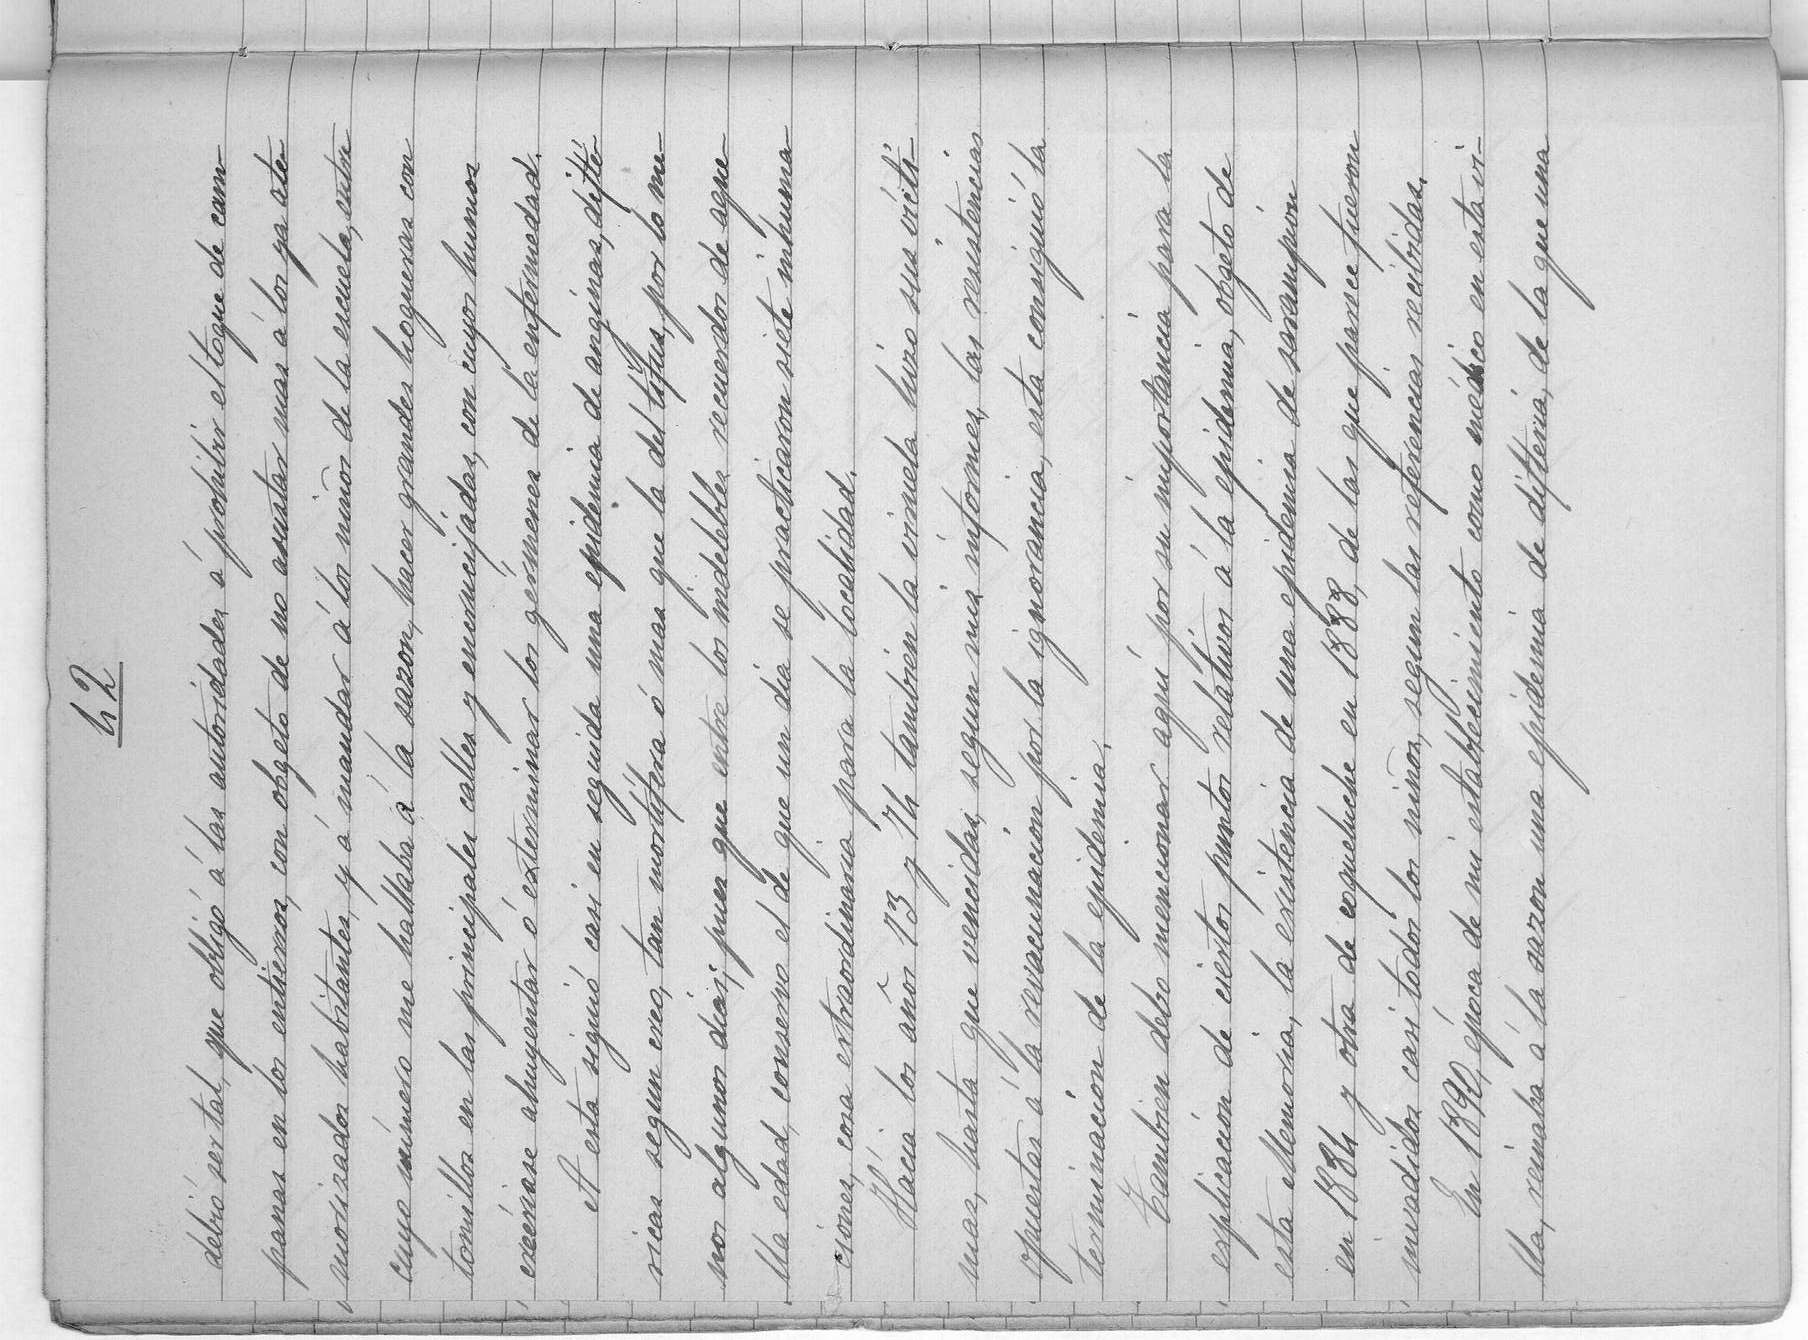 42
debió ser tal, que obligó á las autoridades á prohibir el toque de cam-
panas en los entierros, con obgeto de no asustar mas á los ya ate-
morizados habitantes, y á mandar á los niños de la escuela, entre
cuyo número me hallaba á la sazon, hacer grandes hogueras con
tomillos en las principales calles y encrucijadas, con cuyos humos
creeriase ahuyentar ó exterminar los gérmenes de la enfermedad.
A esta siguió casi en seguida una epidemia de anginas difté-
ricas segun creo, tan mortífera ó mas que la del tifus, por lo me-
nos algunos dias; pues que entre los indelebles recuerdos de aque-
lla edad, conservo el de que un dia se practicaron siete inhuma-
ciones, cosa extraordinaria para la localidad.
Hácia los años 73 y 74 tambien la viruela hizo sus vícti-
mas, hasta que vencidas, segun mis informes, las resistencias
opuestas á la revacunacion por la ignorancia, esta consiguió la
terminacion de la epidemia.
Tambien debo mencionar aquí por su importancia para la
esplicacion de ciertos puntos relativos á la epidemia, obgeto de
esta Memoria, la existencia de una epidemia de sarampion
en 1884 y otra de coqueluche en 1888, de las que parece fueron
invadidos casi todos los niños, segun las referencias recibidas.
En 1890, época de mi establecimiento como médico en esta vi-
lla, reinaba á la sazon una epidemia de difteria, de la que una